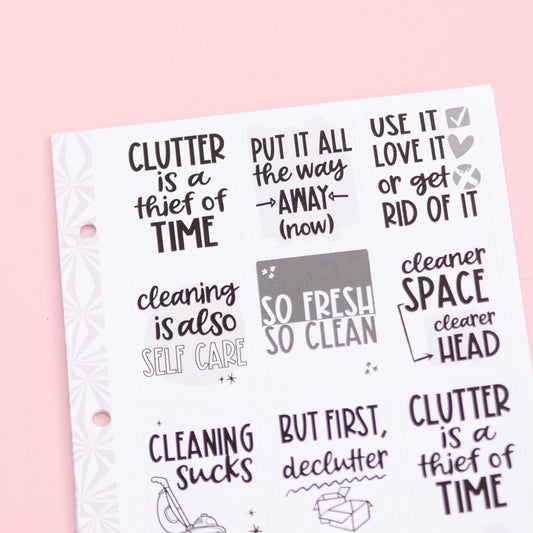 CLUTTER
is a
thief of
TIME
PUT IT ALL
the way
AWAY
(now)
USE IT
LOVE IT
or get
RID OF IT
cleaning
is also
SELF CARE
SO FRESH
SO CLEAN
cleaner
SPACE
clearer
HEAD
CLEANING
sucks
BUT FIRST,
declutter
CLUTTER
is a
thief of
TIME